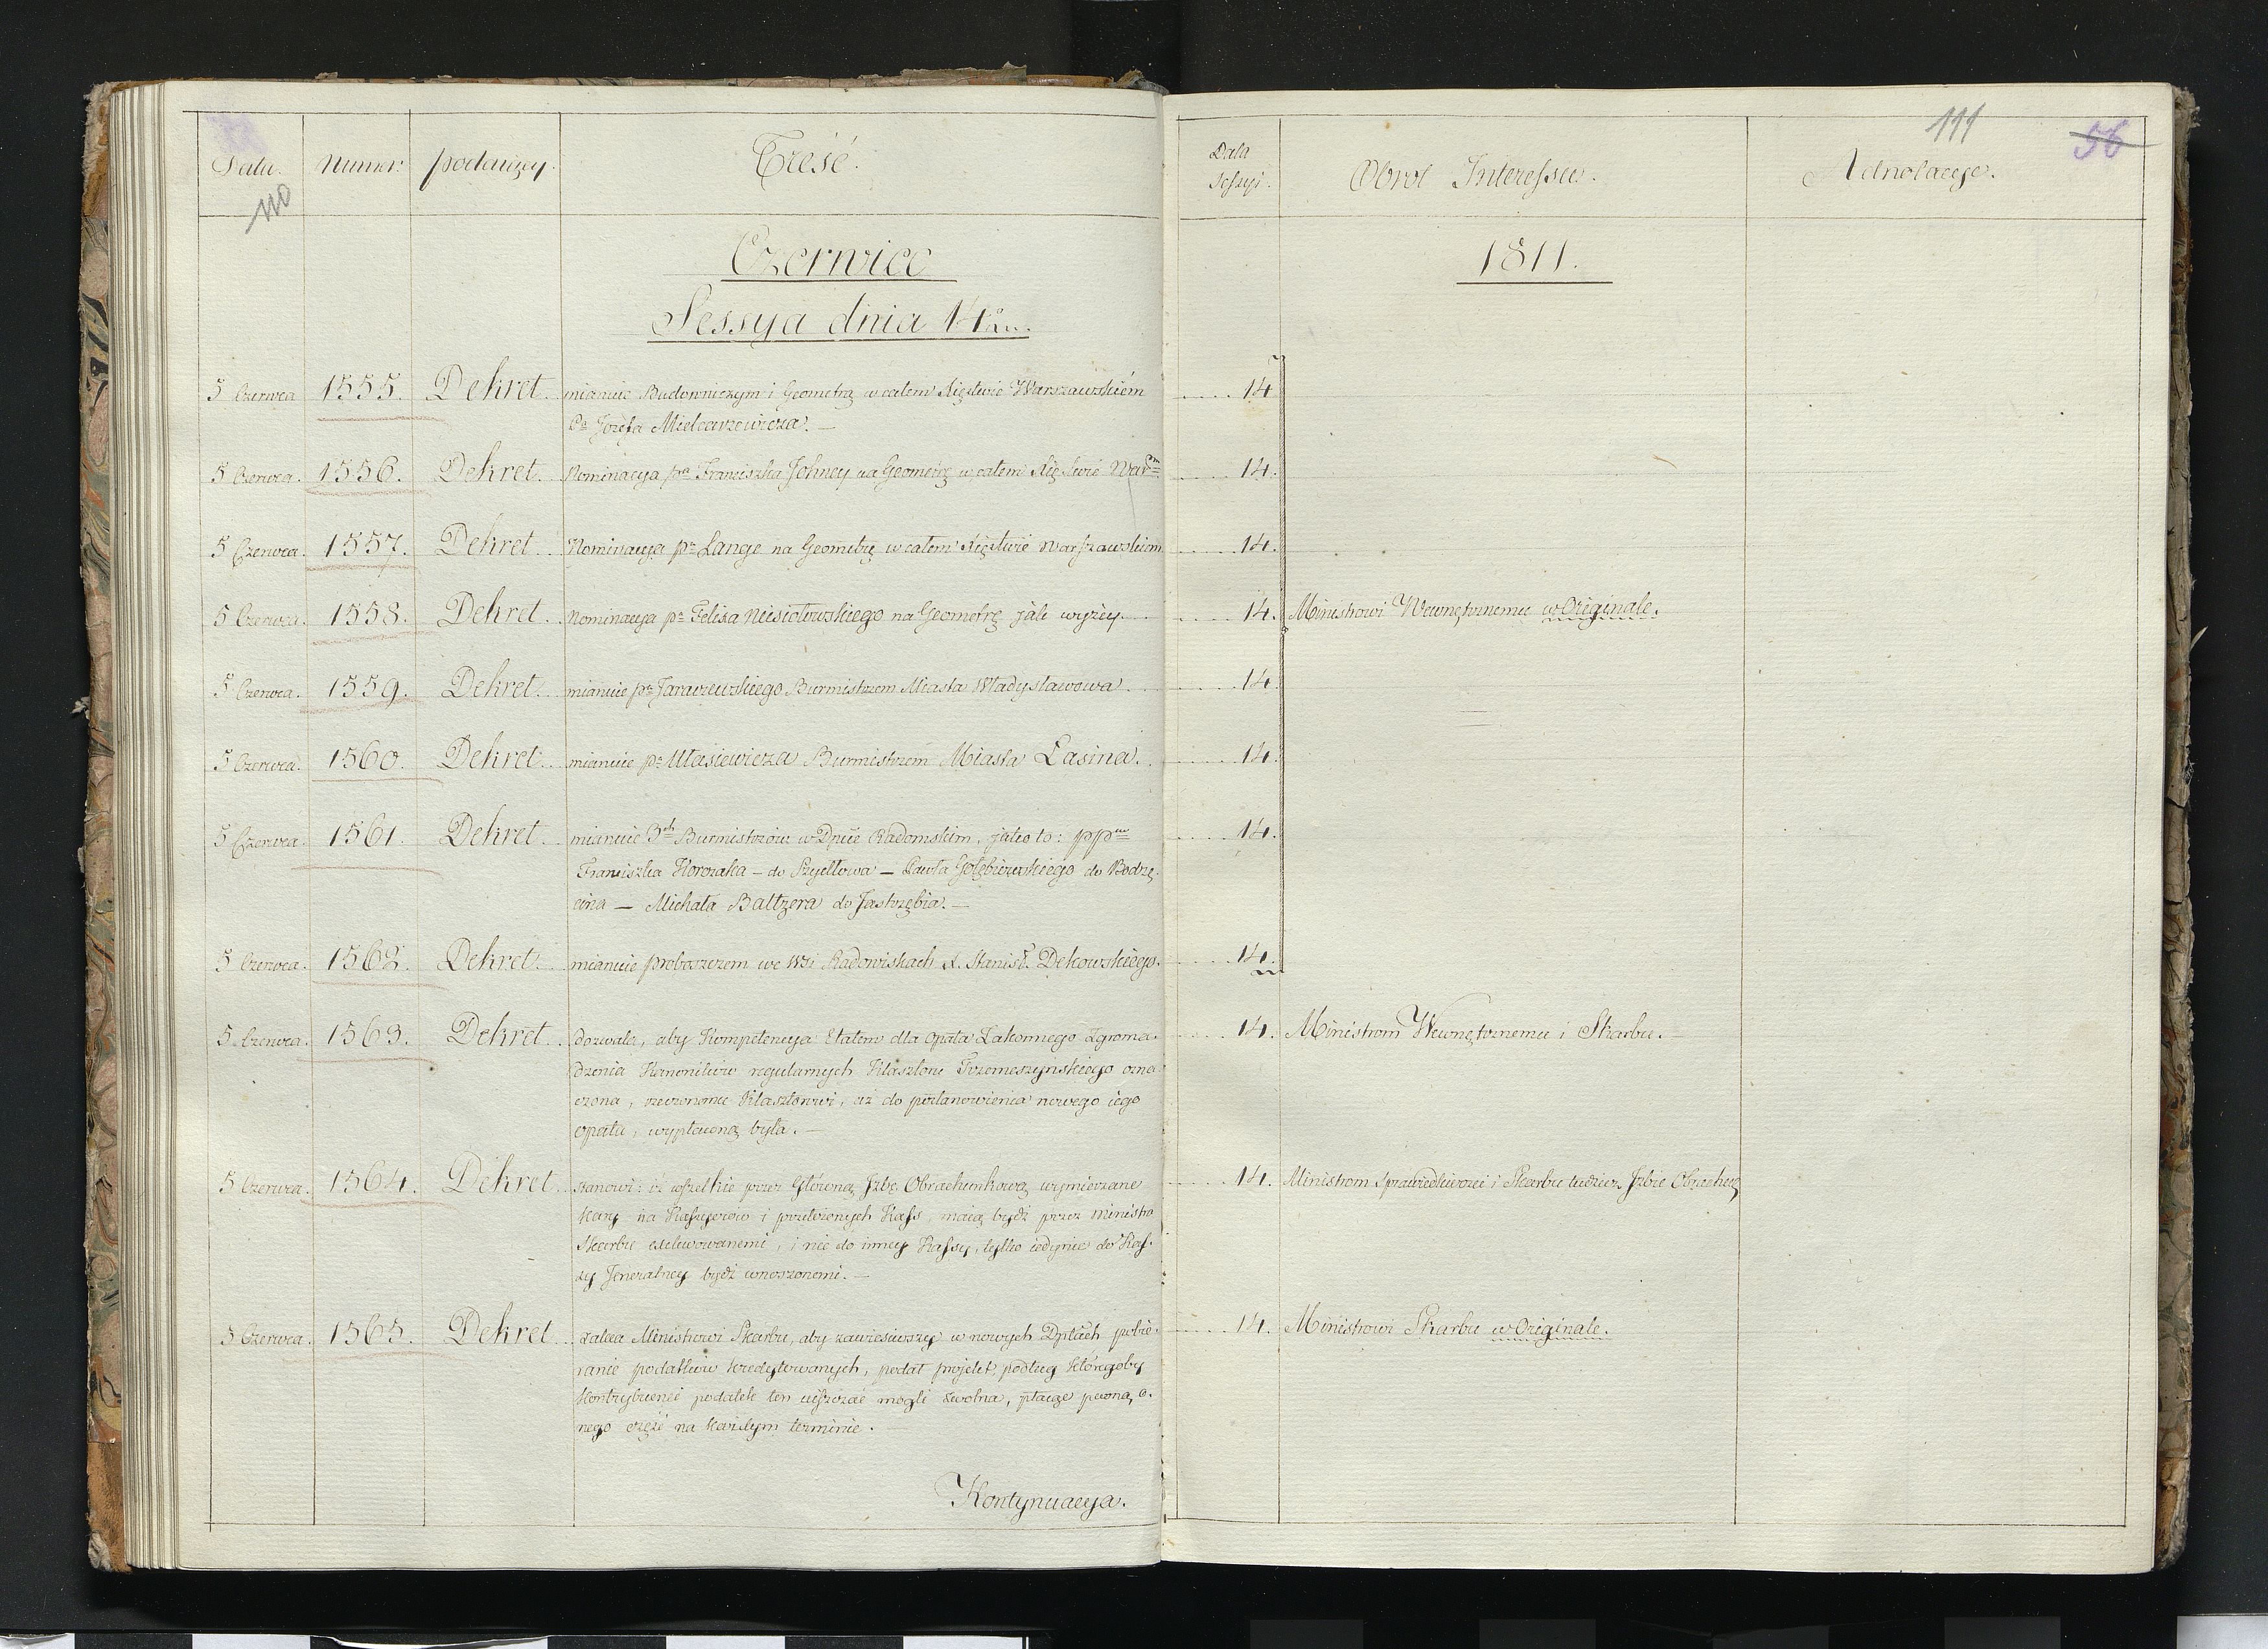 Data. Numer. podawczy. Treść. Data Sessyi. Obrot Interessu. Adnotacye.
110 111 56
Czerwiec 1811.
Sessya dnia 14
5 Czerwca 1555. Dekret mianuie Budowniczym i Geometrą w całem Xięstwie Warszawskiém ..... 14
Pa Józefa Mielcarzewicza. —
5 Czerwca. 1556. Dekret. Nominacya pa Franciszka Johney na Geometrę w całem Xięstwie War ..... 14.
5 Czerwca. 1557. Dekret. Nominacya pa Lange na Geometrę w całem Xięstwie Warszawskiem ..... 14.
5 Czerwca. 1558. Dekret. Nominacya pa Felixa Niesiołowskiego na Geometrę jak wyżey ..... 14. Ministrowi Wewnętrznemu w Originale.
5 Czerwca. 1559. Dekret. mianuie pa Jaraczewskiego Burmistrzem Miasta Władysławowa. ..... 14.
5 Czerwca. 1560. Dekret. mianuie pa Ułasiewicza Burmistrzem Miasta Łasina. ..... 14.
5 Czerwca. 1561. Dekret mianuie 3ch Burmistrzów w Dpcie Radomskim, jako to: pp ..... 14.
Franciszka Korczaka — do Szydłowa — Pawła Gołębiewskiego do Bodzę-
cina — Michała Baltzera do Jastrzębia. —
5 Czerwca. 1562. Dekret. mianuie proboszczem we Wsi Radowiskach X. Stanisł. Dekowskiego. ..... 14.
5 Czerwca. 1563. Dekret dozwala, aby Kompetencya Etatem dla Opata Zakonnego Zgroma- ..... 14. Ministrom Wewnętrznemu i Skarbu. —
dzenia Kanoników regularnych Klasztoru Trzemeszyńskiego ozna
czona, rzeczonemu Klasztorowi, aż do postanowienia nowego iego
opata, wypłacona była. —
5 Czerwca. 1564. Dekret stanowi: iż wszelkie przez Główną Izbę Obrachunkową wymierzane ..... 14. Ministrom Sprawiedliwości i Skarbu tudzież Izbie Obrachu
kary na Kassyerów i przełożonych Kass, maią bydź przez Ministra
Skarbu exekwowanemi, i nie do inney Kassy, tylko iedynie do Kas-
sy Jeneralney bydź wnoszonemi. —
5 Czerwca. 1565. Dekret zaleca Ministrowi Skarbu, aby zawiesiwszy w nowych Dptach pobie- ..... 14. Ministrowi Skarbu w Originale.
ranie podatków kredytowanych, podał projekt, podług któregoby
Kontrybuenci podatek ten uiszczać mogli zwolna, płacąc pewną o-
nego część na każdym terminie. —
Kontynuacya.